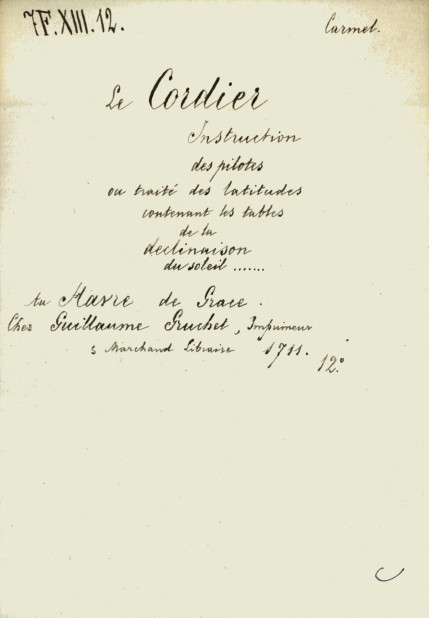 7F.XIII.12.
Carmel.
Le Cordier
Instruction
des pilotes
ou traité des latitudes
contenant les tables
de la
declinaison
du soleil .......
Havre de Grace.
Chez Guillaume Gruchet, Imprimeur
Marchand Libraire 1711.
12°